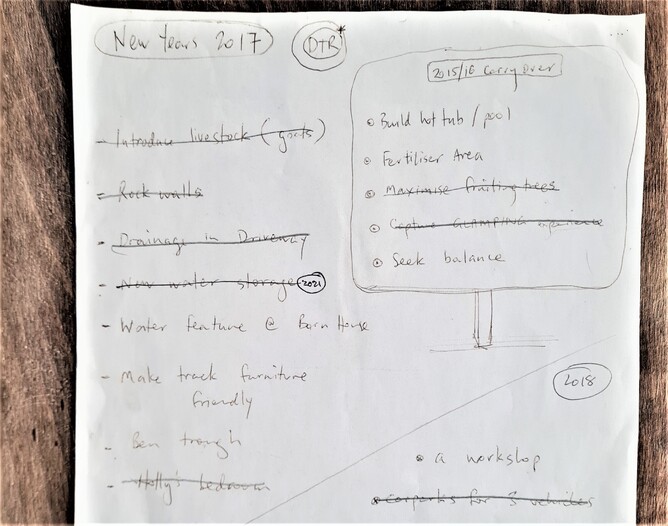 New Years 2017
DTR*
- Introduce livestock (goats)
- Rock walls
- Drainage in Driveway
- New water storage 2021
- Water feature @ Barn House
- Make track furniture
friendly
- Ben trough
- Holly's bedroom
2015/16 Carry over
Build hot tub / pool
Fertiliser Area
Maximise fruiting trees
Capture GLAMPING experience
Seek balance
2018
a workshop
carparks for 3 vehicles